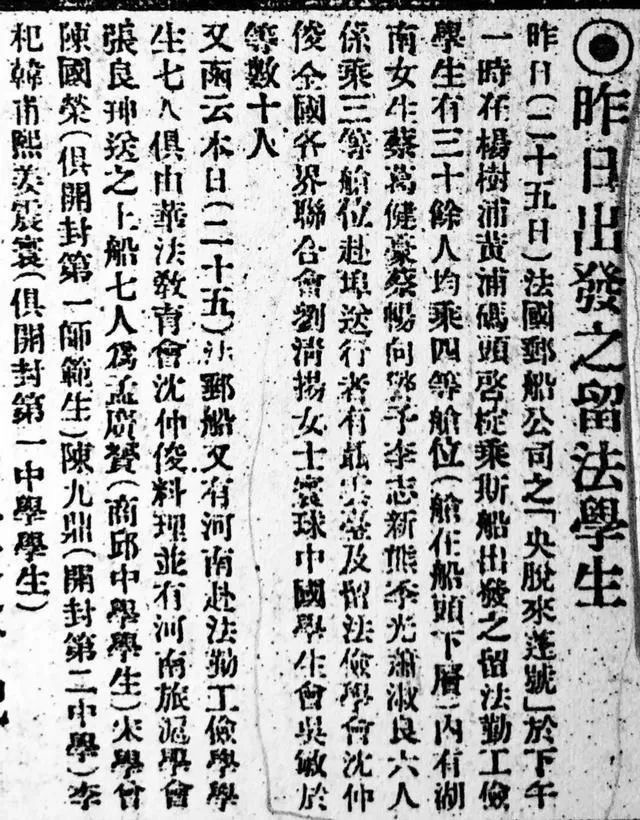 昨日出發之留法學生
昨日(二十五日)法國郵船公司之「央脫來蓬號」於下午
一時在楊樹浦黃浦碼頭啓椗乘斯船出發之留法勤工儉
學生有三十餘人均乘四等艙位(艙在船頭下層)內有湖
南女生蔡葛健豪蔡暢向警予李志新熊季光蕭淑良六人
係乘三等艙位赴埠送行者有聶雲臺及留法儉學會沈仲
俊全國各界聯合會劉清揚女士寰球中國學生會吳敏於
等數十人
又函云本日(二十五)法郵船又有河南赴法勤工儉學學
生七人俱由華法敎育會沈仲俊料理並有河南旅滬學會
張良珅送之上船七人爲孟廣贊(商邱中學學生)宋學曾
陳國榮(俱開封第一師範生)陳九鼎(開封第二中學)李
杞韓甫熙姜震寰(俱開封第一中學學生)